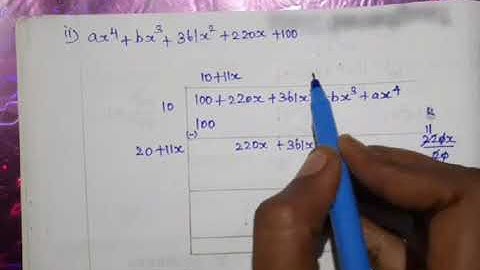 ii) ax⁴ + bx³ + 361x² + 220x + 100
10+11x
10 100 + 220x + 361x bx³ + ax⁴
100
(-)
20+11x 220x + 361x
11
220x
20